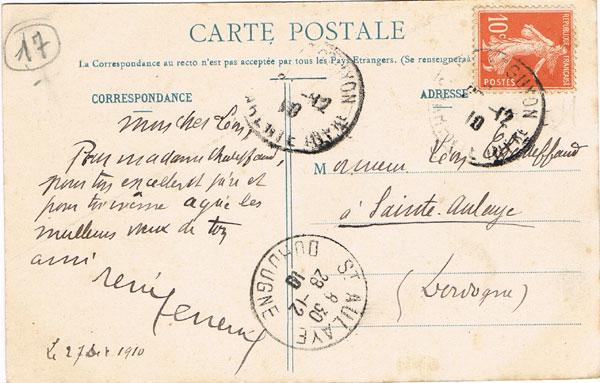 17
CARTE POSTALE
La Correspondance au recto n'est pas acceptée par tous les Pays Etrangers. (Se renseigner
CORRESPONDANCE
ADRESSE
REPUBLIQUE FRANÇAISE
10c
POSTES
12
10
12
10
mon cher Léon,
Pour madame
pour ton excellent père et
pour toi même agrée les
meilleurs vœux de ton
ami
rené
Le 27 1910
Monsieur Léon
à Sainte-Aulaye
(Dordogne)
ST AULAYE
8 30
28 -12
10
DORDOGNE